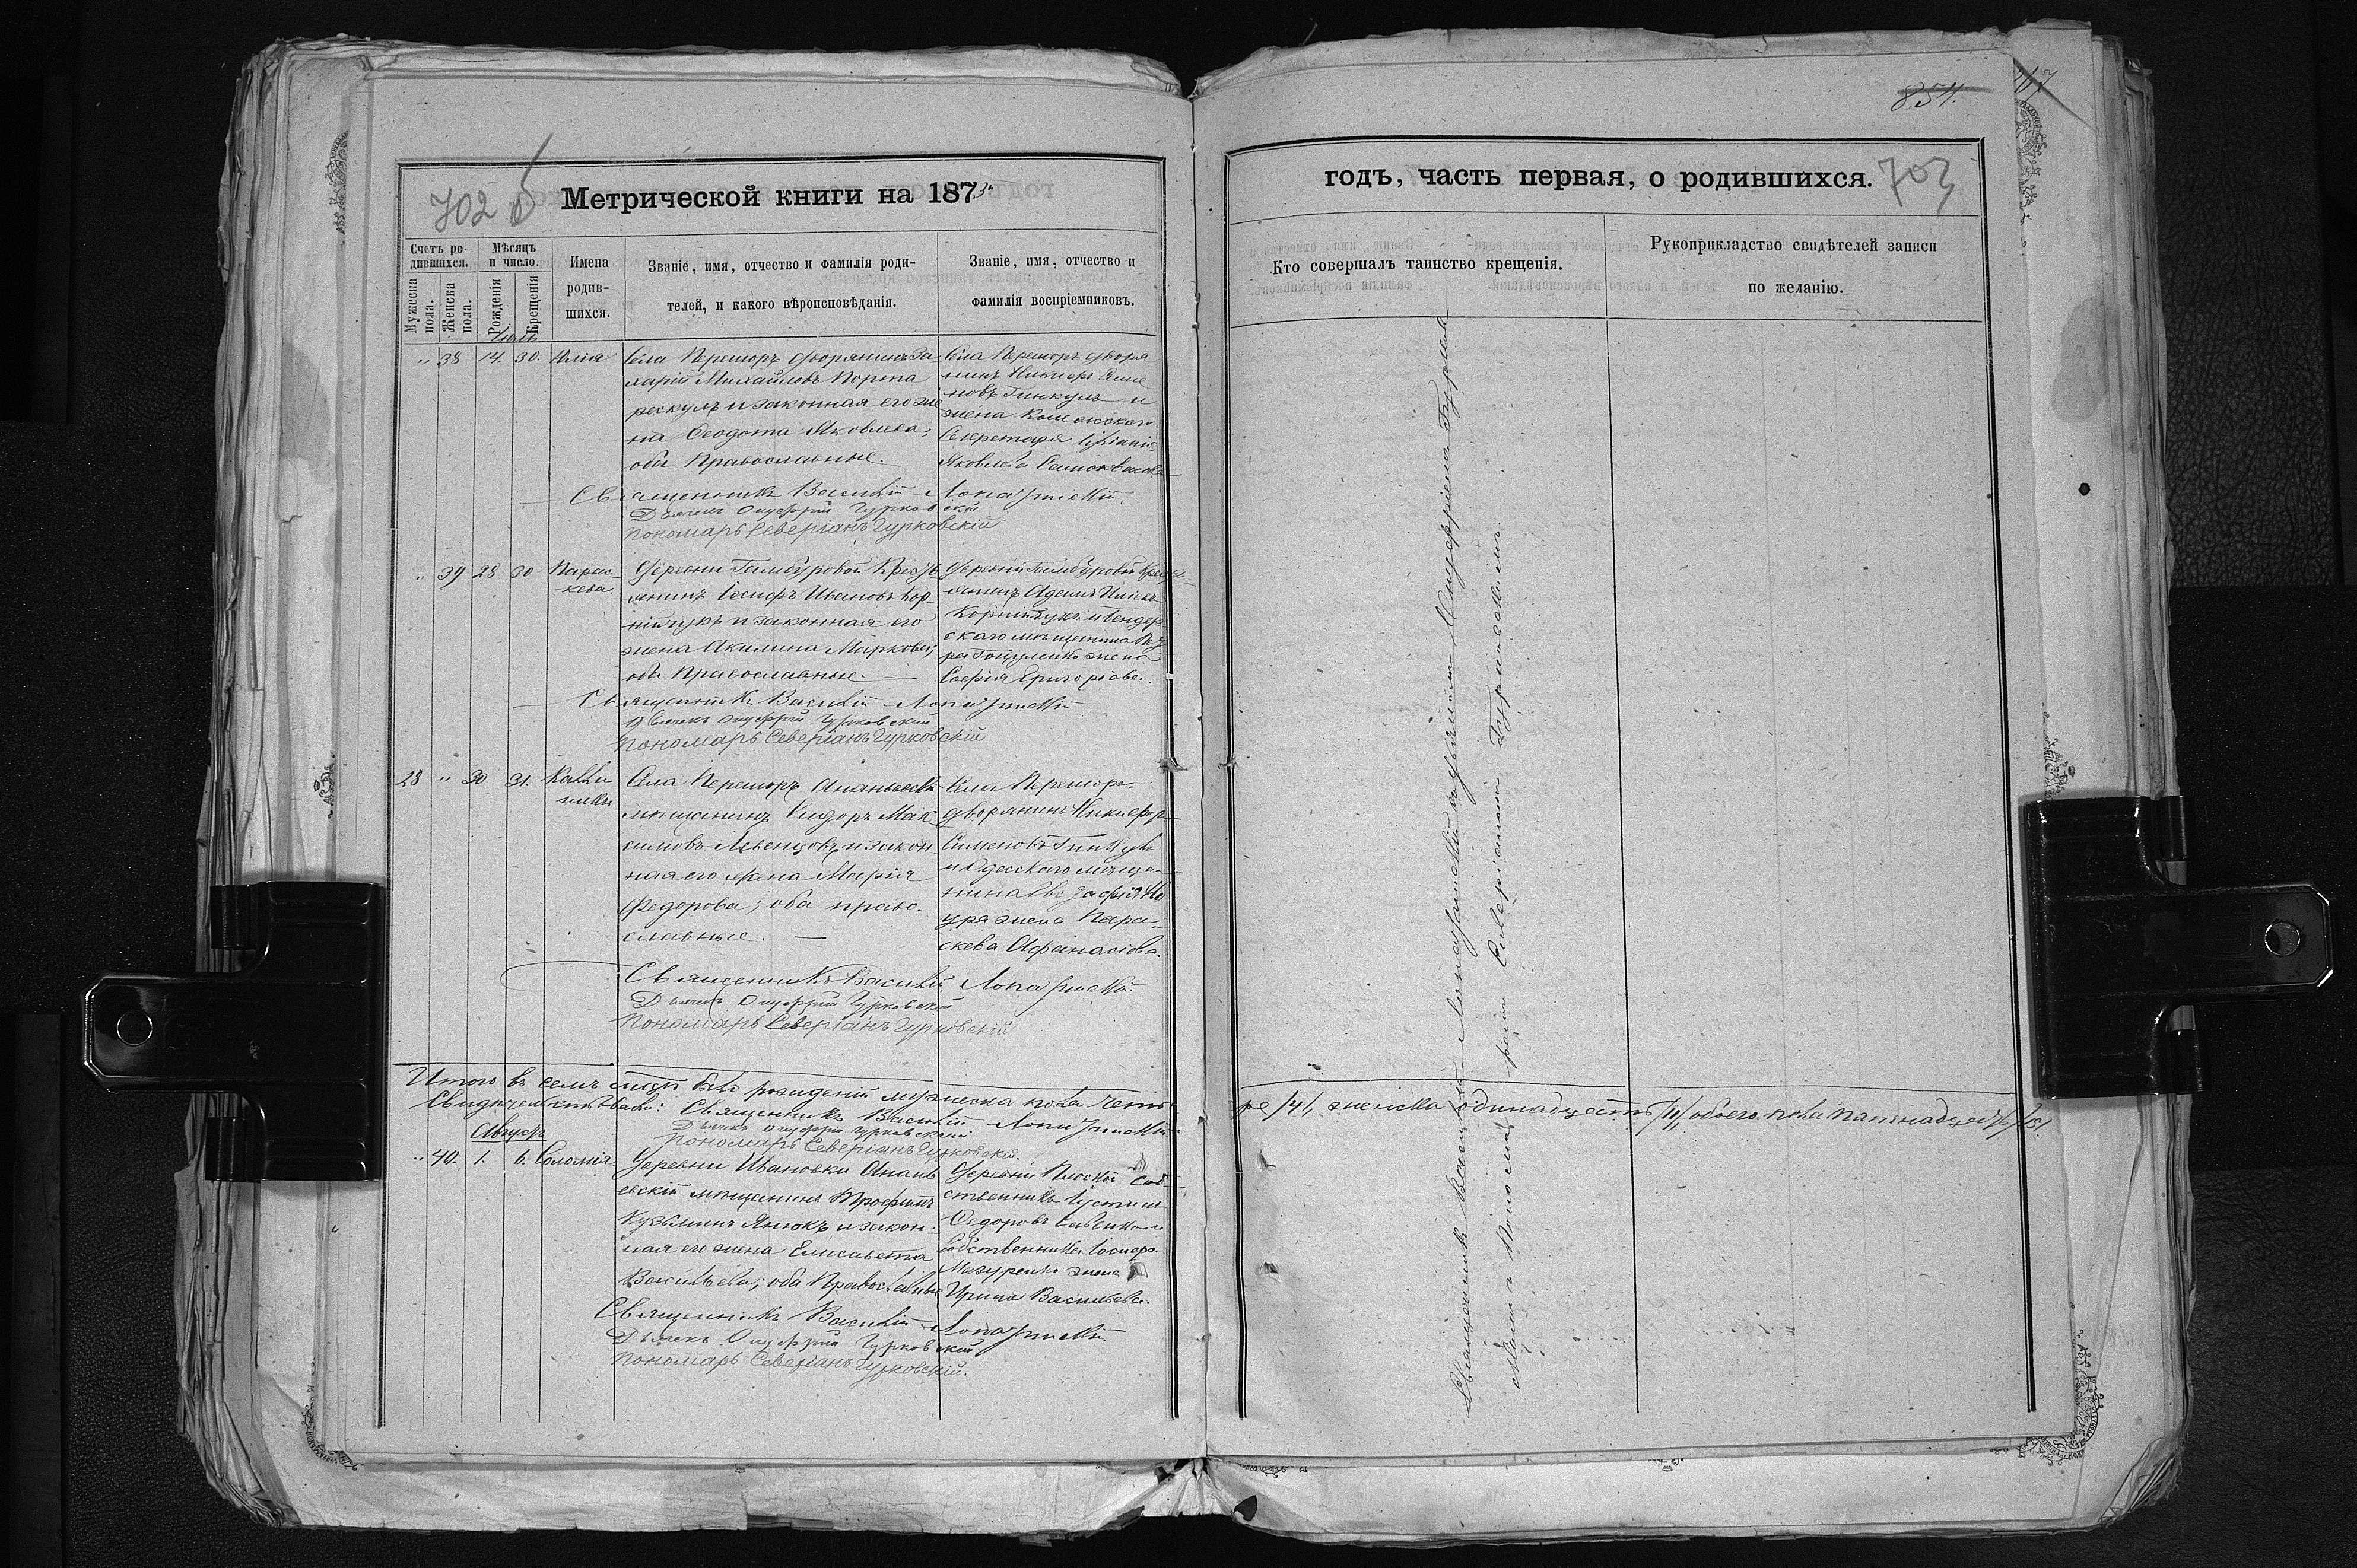 702 б
Метрической книги на 1873
Счетъ ро-
дившихся.
Мѣсяцъ
и число.
Мужеска
пола.
Женска
пола.
Рожденія
Крещенія
Имена
родив-
шихся.
Званіе, имя, отчество и фамилія роди-
телей, и какого вѣроисповѣданія.
Званіе, имя, отчество и
фамилія воспріемниковъ.
Іюль
" 38 14. 30. Юлія
Села Перешоръ дворянинъ За-
харій Михайловъ Порта
рескулъ и законная его же
на Ѳеодота Яковлева,
оба Православные.
Села Перешоръ дворя
нинъ Никифоръ Симе
новъ Гинкулъ и
жена Колежскаго
Секретаря
Яковлева
Священникъ Василій Лопатинскій.
Дьячекъ Онуфрій Гурковскій
Пономарь Северіанъ Гурковскій
" 39 28 30 Парас-
кева.
Деревни Гамбуровой Кресть
янинъ Іосифъ Ивановъ Кор-
нійчукъ и законная его
жена Акилина Маркова,
оба Православные.
Деревни Гамбуровой Кресть-
янинъ Адамъ
Корнійчукъ и Бендер-
скаго мѣщанина Пет
ра жена
Софія Григоріева.
Священникъ Василій Лопатинскій
Дьячекъ Онуфрій Гурковскій
Пономарь Северіанъ Гурковскій
28 " 30 31. Калли
никъ
Села Перешоръ Ананьевскій
мѣщанинъ Сидоръ Мак-
симовъ Левенцовъ и закон-
ная его жена Марія
Федорова; оба право-
славные. —
Села Перешоръ
дворянинъ Никифоръ
Сименовъ Гинкулъ
и Одесскаго мѣща-
нина
ура жена Пара-
скева Афанасіева.
Священникъ Василій Лопатинскій.
Дьячекъ Онуфрій Гурковскій
Пономарь Северіанъ Гурковскій
Итого въ семъ было рожденій мужеска пола четы-
Свидѣтельствовали: Священникъ Василій Лопатинскій
Дьячекъ Онуфрій Гурковскій
Пономарь Северіанъ Гурковскій.
Августъ
" 40. 1. 6. Соломія.
Деревни Ивановки Анань
евскій мѣщанинъ Трофимъ
Кузьминъ Янюкъ и закон-
ная его жена Елисавета
Васильева; оба Православные
Деревни Плоской Соб-
ственникъ Іустинъ
Ѳедоровъ Савенко и
собственника Іосифа
Мазуренко жена
Ирина Васильева.
Священникъ Василій Лопатинскій
Дьячекъ Онуфрій Гурковскій
Пономарь Северіанъ Гурковскій.
854.
767
годъ, часть первая, о родившихся.
703
Кто совершалъ таинство крещенія.
Рукоприкладство свидѣтелей записи
по желанію.
Священникъ Василій Лопатинскій съ дьячкомъ Онуфріемъ Гурков-
скимъ и Пономаремъ Северіаномъ Гурковскимъ.
ре /4/, женска одинадцать /11/, обоего пола пятнадцать /15/.